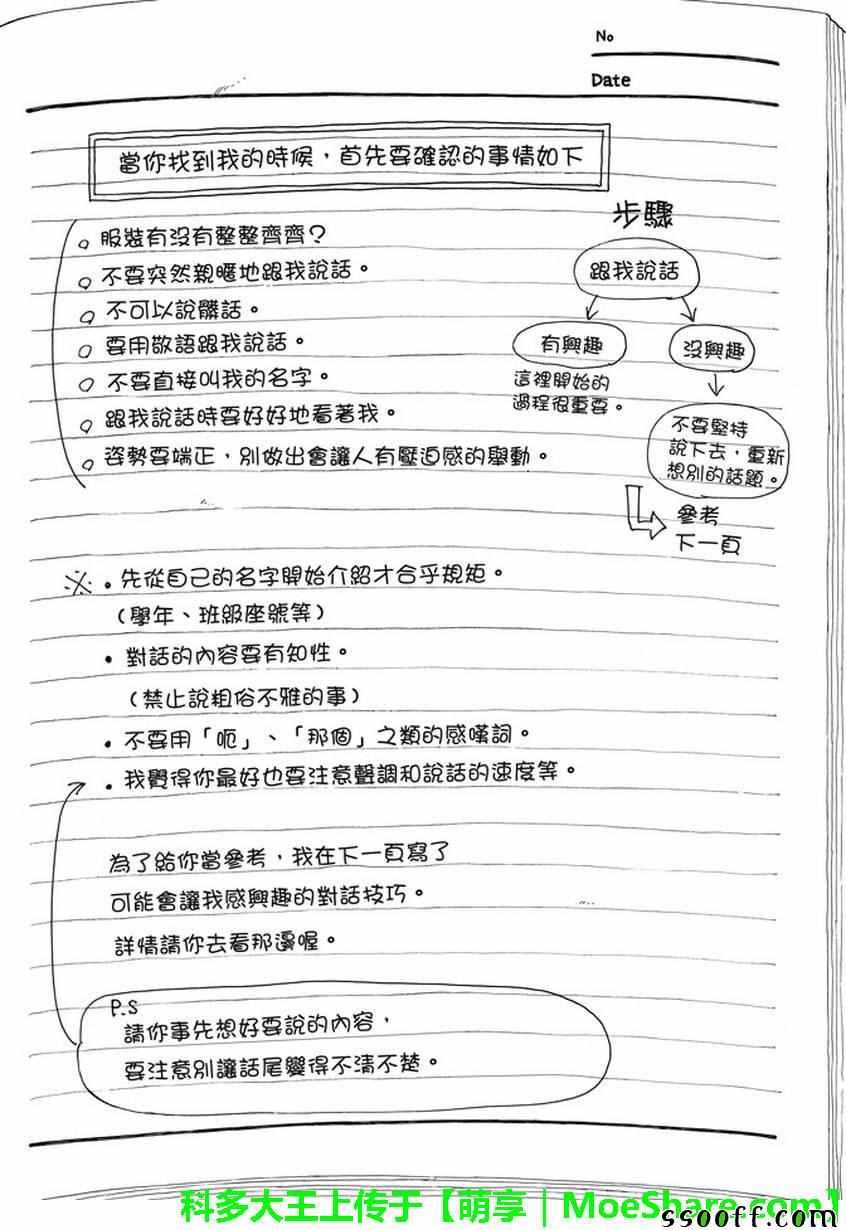 No
Date
當你找到我的時候，首先要確認的事情如下
服裝有沒有整整齊齊？
不要突然親暱地跟我說話。
不可以說髒話。
要用敬語跟我說話。
不要直接叫我的名字。
跟我說話時要好好地看著我。
姿勢要端正，別做出會讓人有壓迫感的舉動。
步驟
跟我說話
有興趣
這裡開始的
過程很重要。
沒興趣
不要堅持
說下去，重新
想別的話題。
參考
下一頁
※・先從自己的名字開始介紹才合乎規矩。
（學年、班級座號等）
・對話的內容要有知性。
（禁止說粗俗不雅的事）
・不要用「呃」、「那個」之類的感嘆詞。
・我覺得你最好也要注意聲調和說話的速度等。
為了給你當參考，我在下一頁寫了
可能會讓我感興趣的對話技巧。
詳情請你去看那邊喔。
P.S
請你事先想好要說的內容，
要注意別讓話尾變得不清不楚。
科多大王上传于【萌享｜MoeShare.com】
ssooff.com